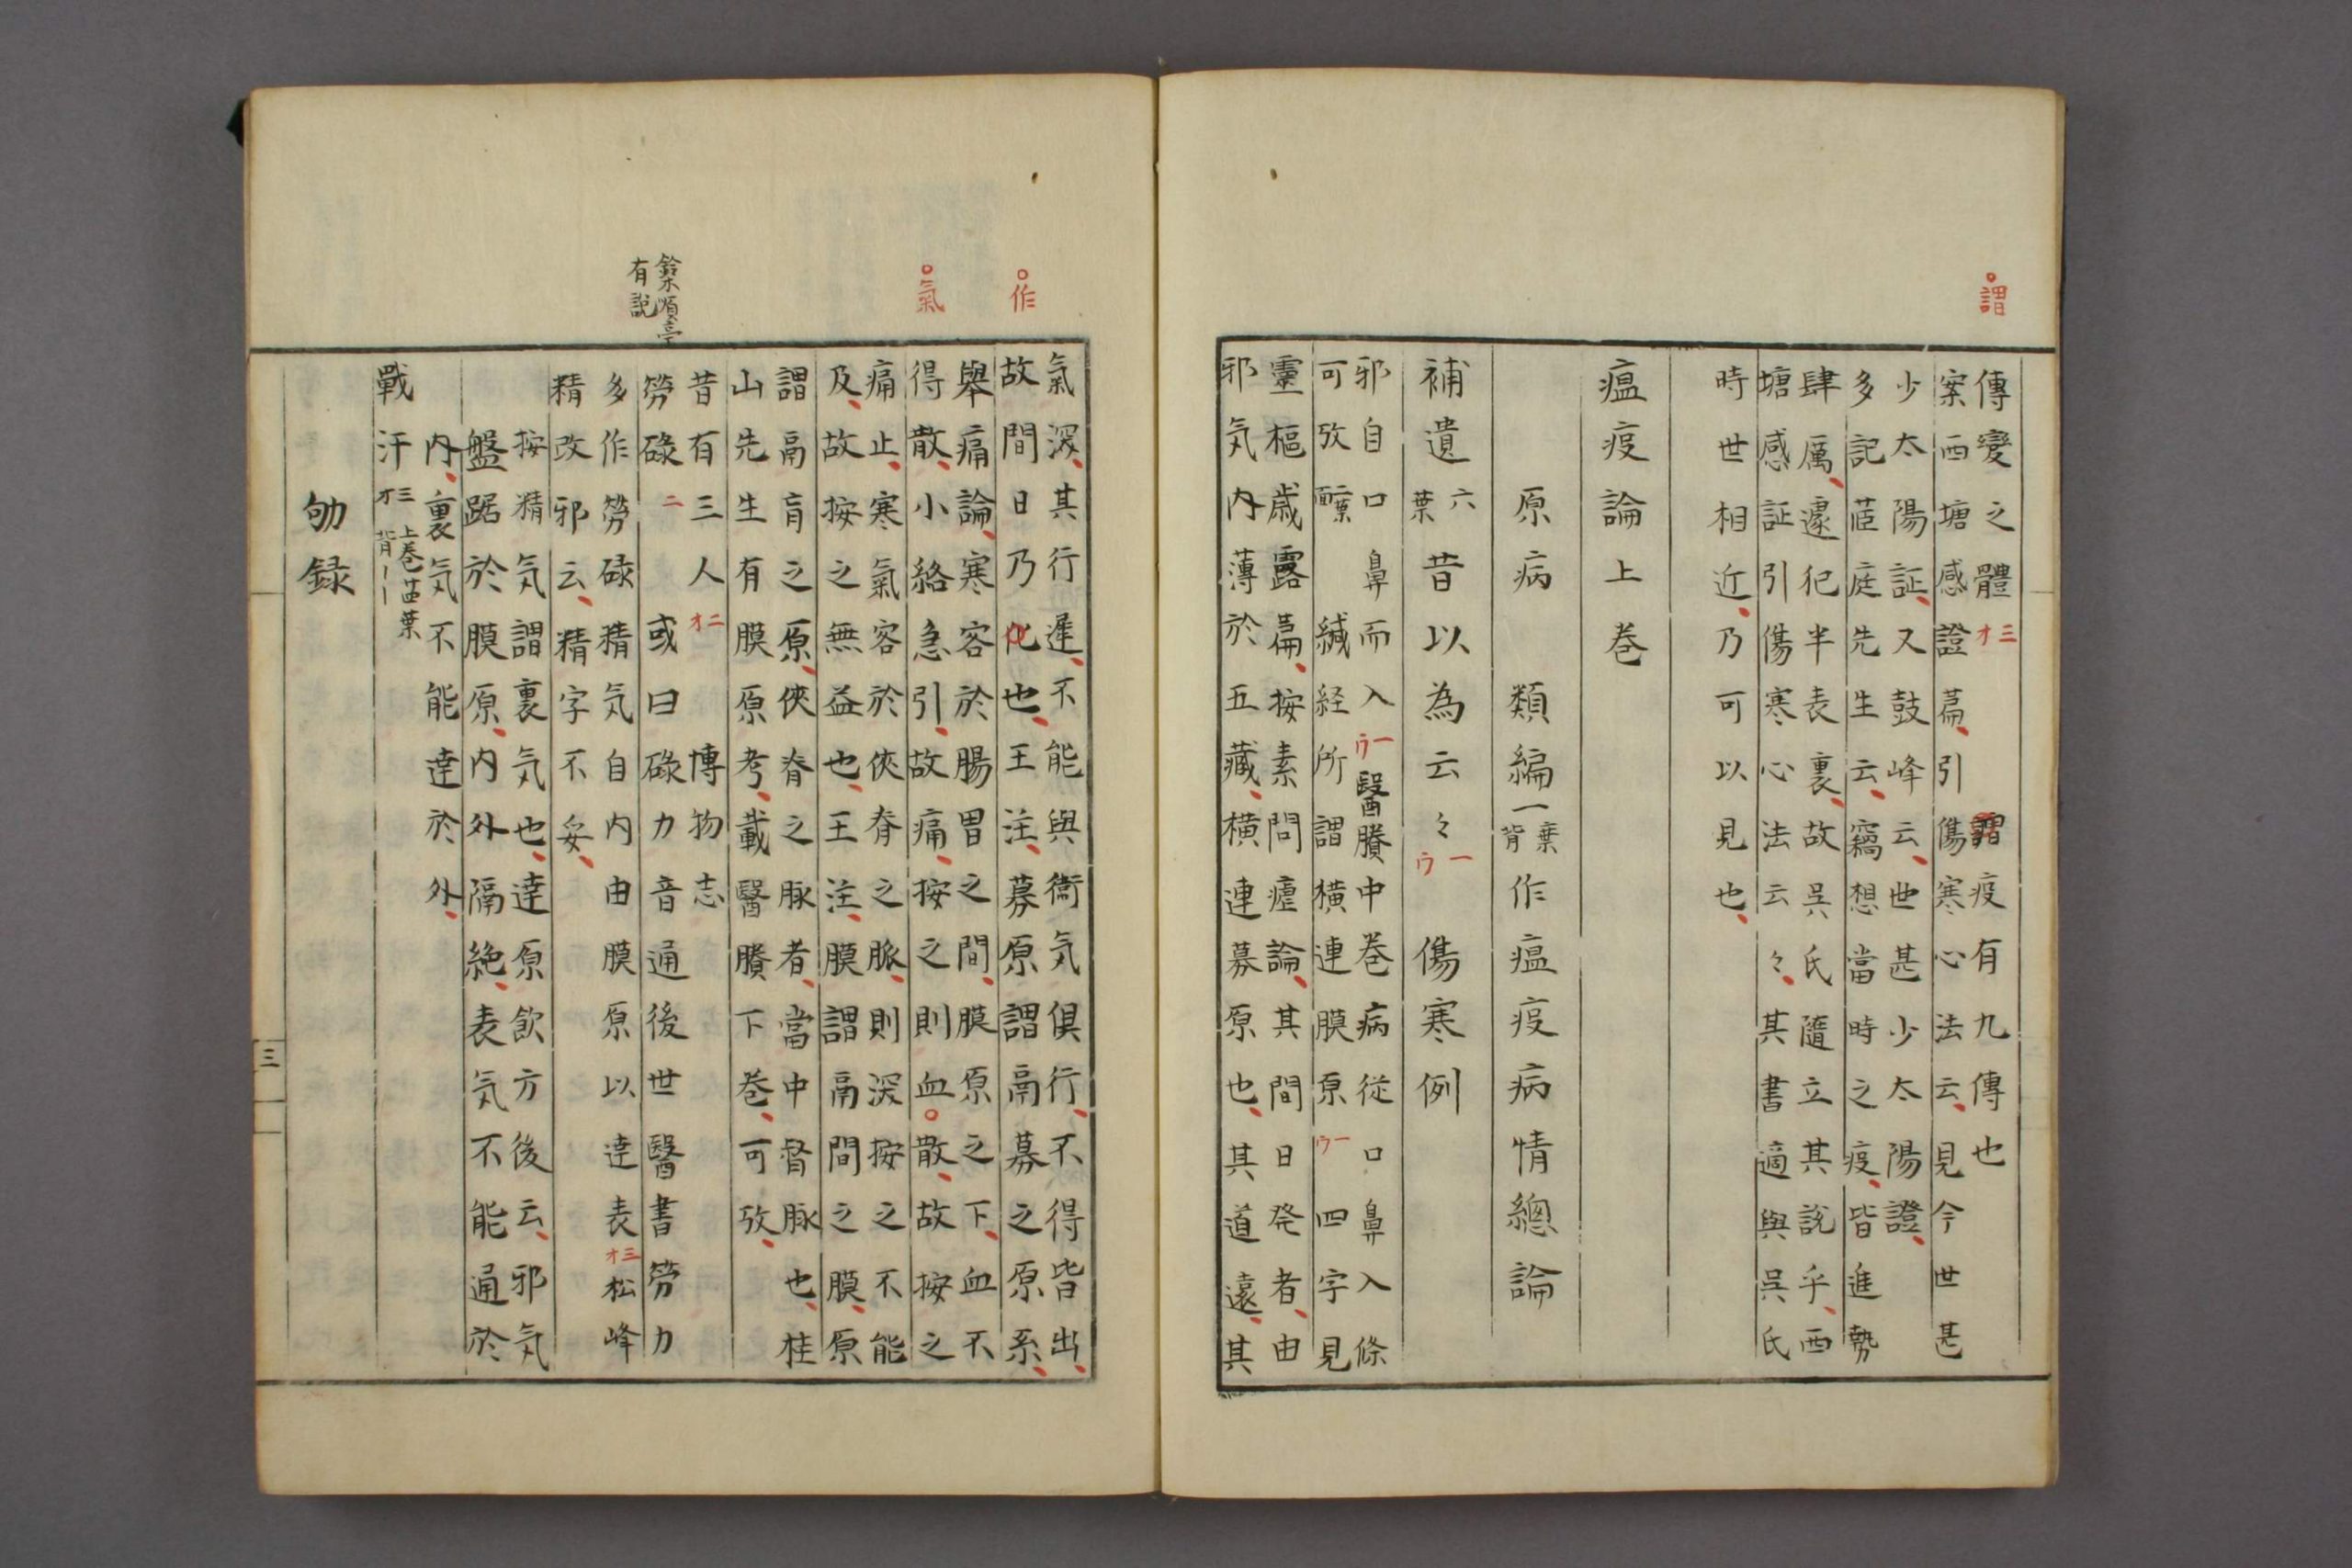 謂
傳變之體三オ 謂疫有九傳也
案西塘感證篇引傷寒心法云見今世甚
少太陽証又鼓峰云世甚少太陽證
多記茝庭先生云竊想當時之疫皆進勢
肆厲遽犯半表裏故吳氏隨立其說乎西
塘感証引傷寒心法云々其書適與吳氏
時世相近乃可以見也
瘟疫論上巻
原病 類編一葉背作瘟疫病情總論
補遺六葉昔以為云々一ウ 傷寒例
邪自口鼻而入一ウ醫賸中巻病從口鼻入條
可攷 緘経所謂横連膜原一ウ四字見
靈樞歳露篇按素問瘧論其間日発者由
邪気内薄於五藏横連募原也其道遠其
作
氣
鈴木順亭
有説
氣深其行遲不能與衛気俱行不得皆出
故間日乃化也王注募原謂鬲募之原系
舉痛論寒客於腸胃之間膜原之下血不
得散小絡急引故痛按之則血散故按之
痛止寒氣客於俠脊之脈則深按之不能
及故按之無益也王注膜謂鬲間之膜原
謂鬲肓之原俠脊之脉者當中督脉也桂
山先生有膜原考載醫賸下巻可攷
昔有三人二オ 博物志
勞碌二 或曰碌力音通後世醫書勞力
多作勞碌精気自内由膜原以達表三オ松峰
精改邪云精字不妥
按精気謂裏気也達原飲方後云邪気
盤踞於膜原内外隔絶表気不能通於
内裏気不能達於外
戰汗三オ上巻廿四葉背
三
劬録